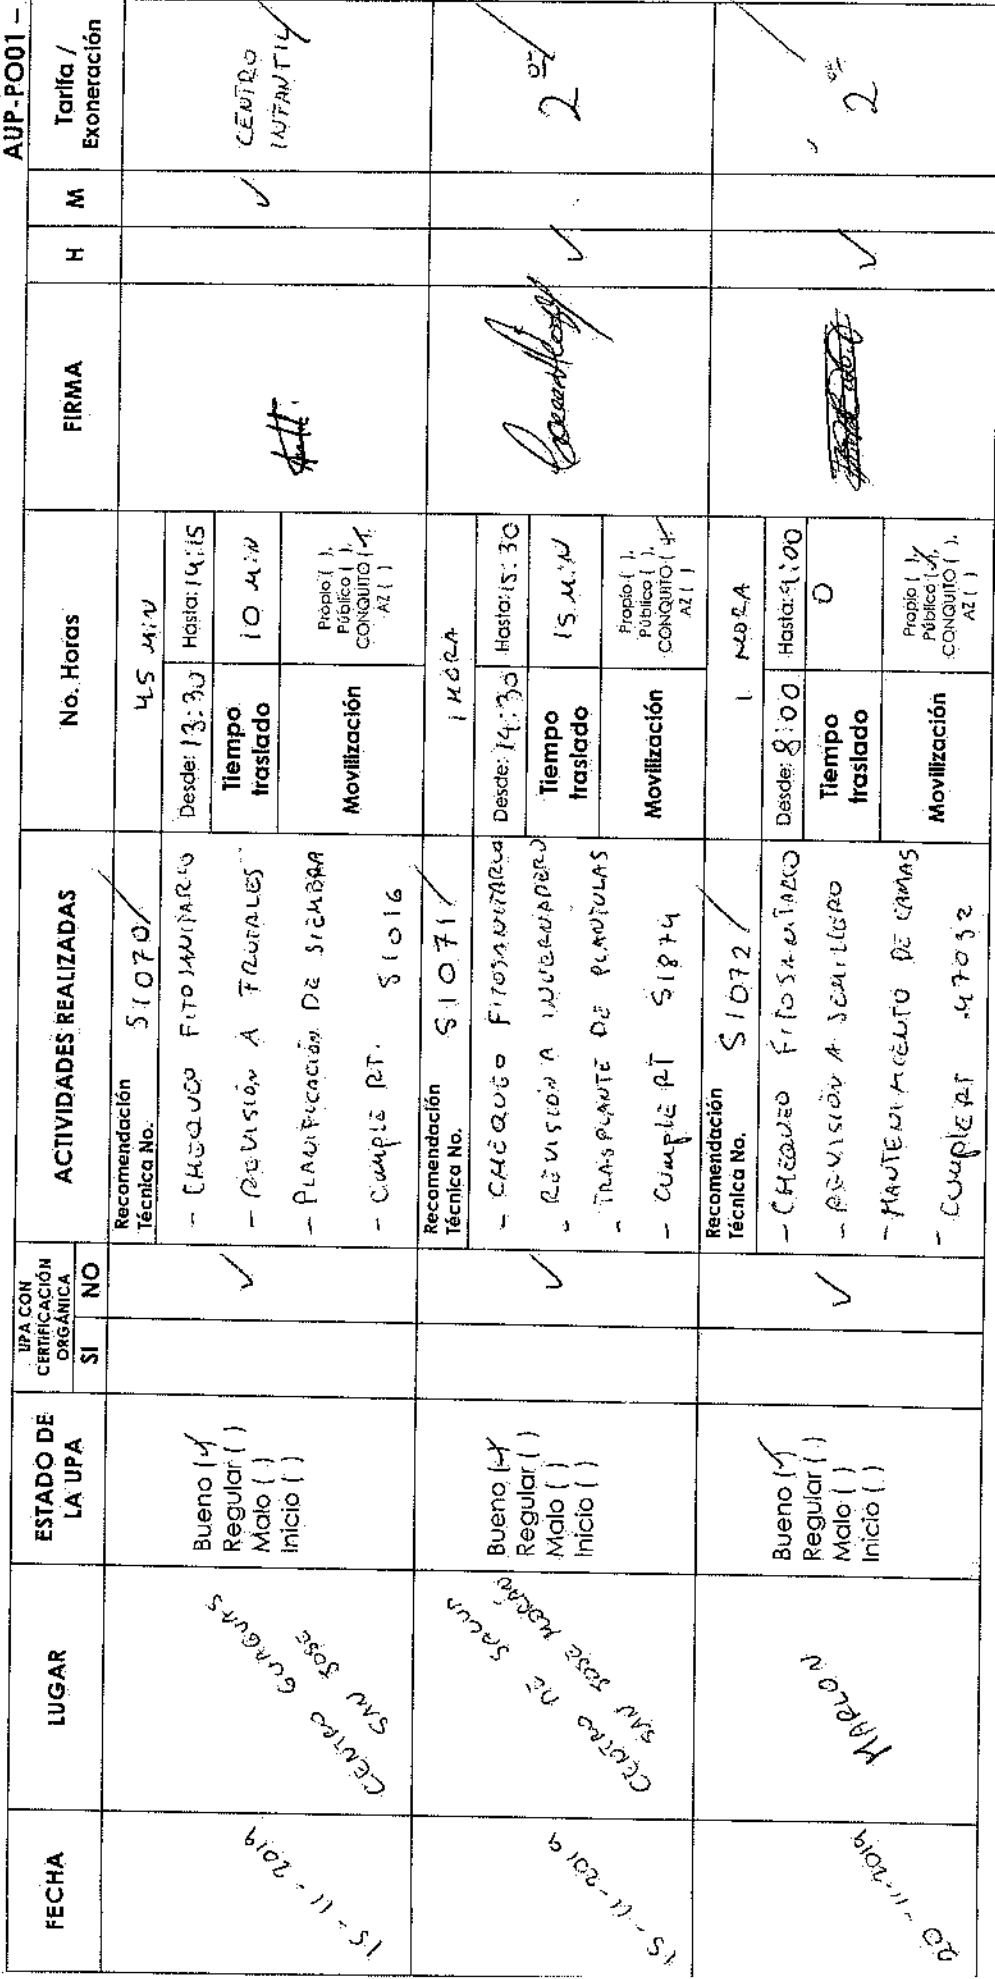 AUP-PO01 -
FECHA
LUGAR
ESTADO DE
LA UPA
UPA CON
CERTIFICACIÓN
ORGÁNICA
SI
NO
ACTIVIDADES REALIZADAS
No. Horas
FIRMA
H
M
Tarifa /
Exoneración
15-11-2019
CENTRO GUAGUAS
SAN JOSE
Bueno (✓)
Regular ( )
Malo ( )
Inicio ( )
✓
Recomendación
Técnica No.
51070
- CHEQUEO FITOSANITARIO
- REVISIÓN A FRUTALES
- PLANIFICACIÓN DE SIEMBRA
- CUMPLE RT. 51016
45 MIN
Desde: 13:30
Hasta: 14:15
Tiempo
traslado
10 MIN
Movilización
Propio ( ),
Público ( ),
CONQUITO (✓),
AZ ( )
✓
CENTRO
INFANTIL
15-11-2019
CENTRO DE SALUD
SAN JOSE MORÁN
Bueno (✓)
Regular ( )
Malo ( )
Inicio ( )
✓
Recomendación
Técnica No.
51071
- CHEQUEO FITOSANITARIO
- REVISIÓN A INVERNADERO
- TRASPLANTE DE PLANTULAS
- CUMPLE RT 51874
1 HORA
Desde: 14:30
Hasta: 15:30
Tiempo
traslado
15 MIN
Movilización
Propio ( ),
Público ( ),
CONQUITO (✓),
AZ ( )
✓
2
20-11-2019
MARLON
Bueno (✓)
Regular ( )
Malo ( )
Inicio ( )
✓
Recomendación
Técnica No.
51072
- CHEQUEO FITOSANITARIO
- REVISIÓN A SEMILLERO
- MANTENIMIENTO DE CAMAS
- CUMPLE RT 47032
1 HORA
Desde: 8:00
Hasta: 9:00
Tiempo
traslado
0
Movilización
Propio ( ),
Público (✓),
CONQUITO ( ),
AZ ( )
✓
2